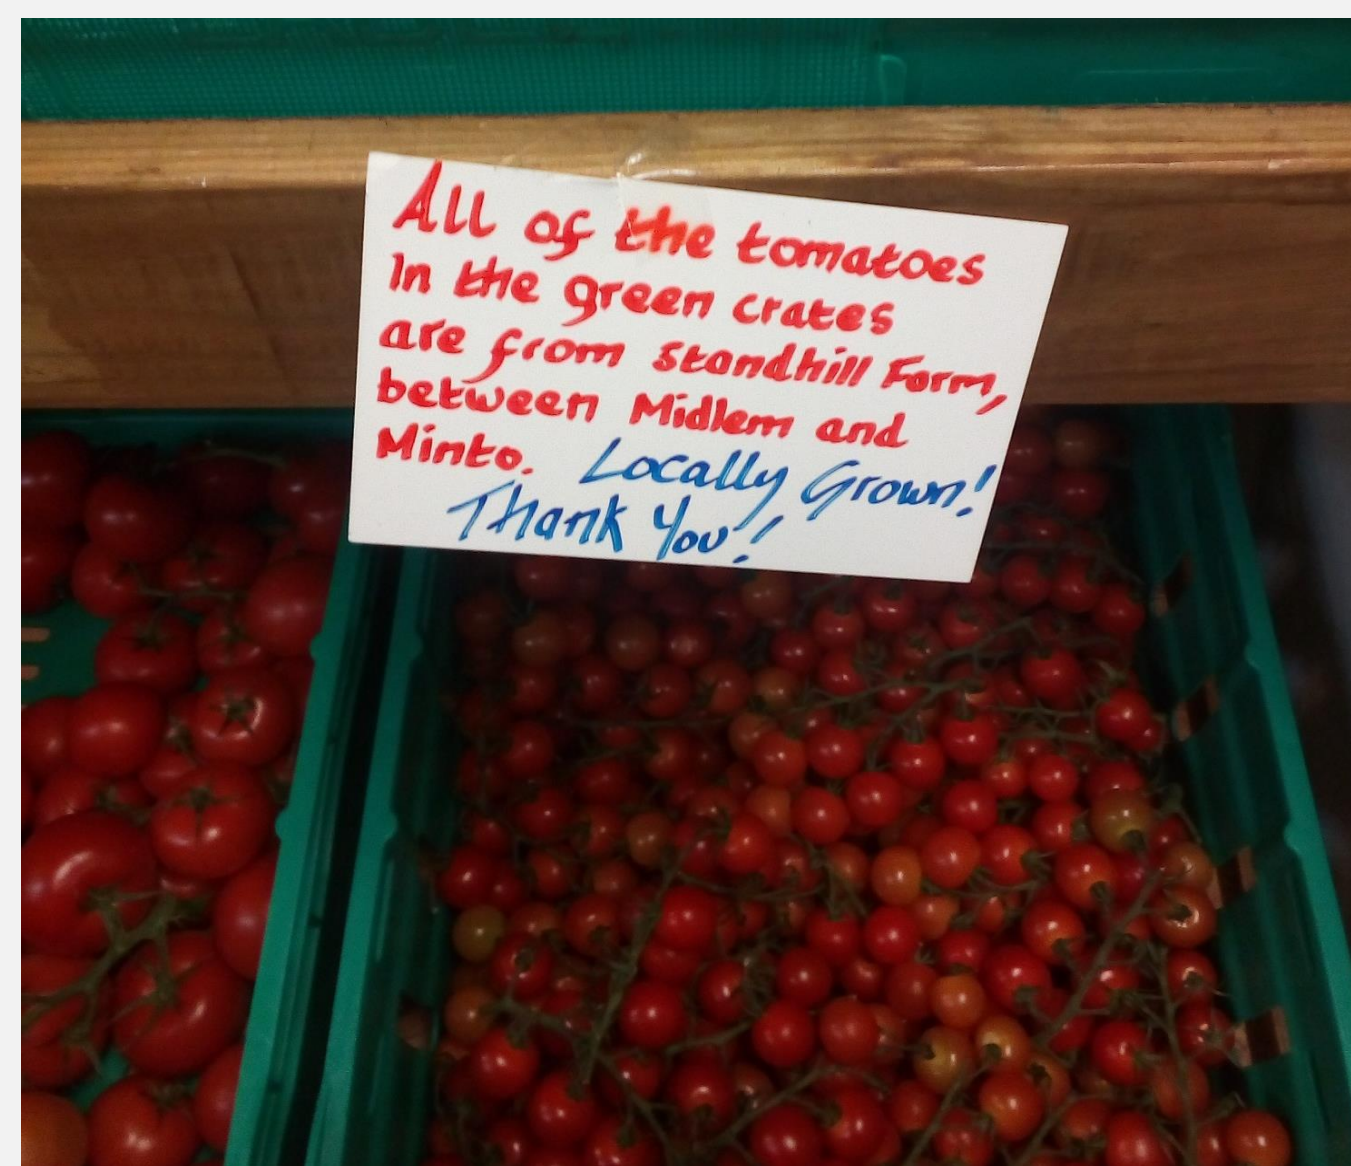 All of the tomatoes
In the green crates
are from Standhill Farm,
between Midlem and
Minto. Locally Grown!
Thank You!